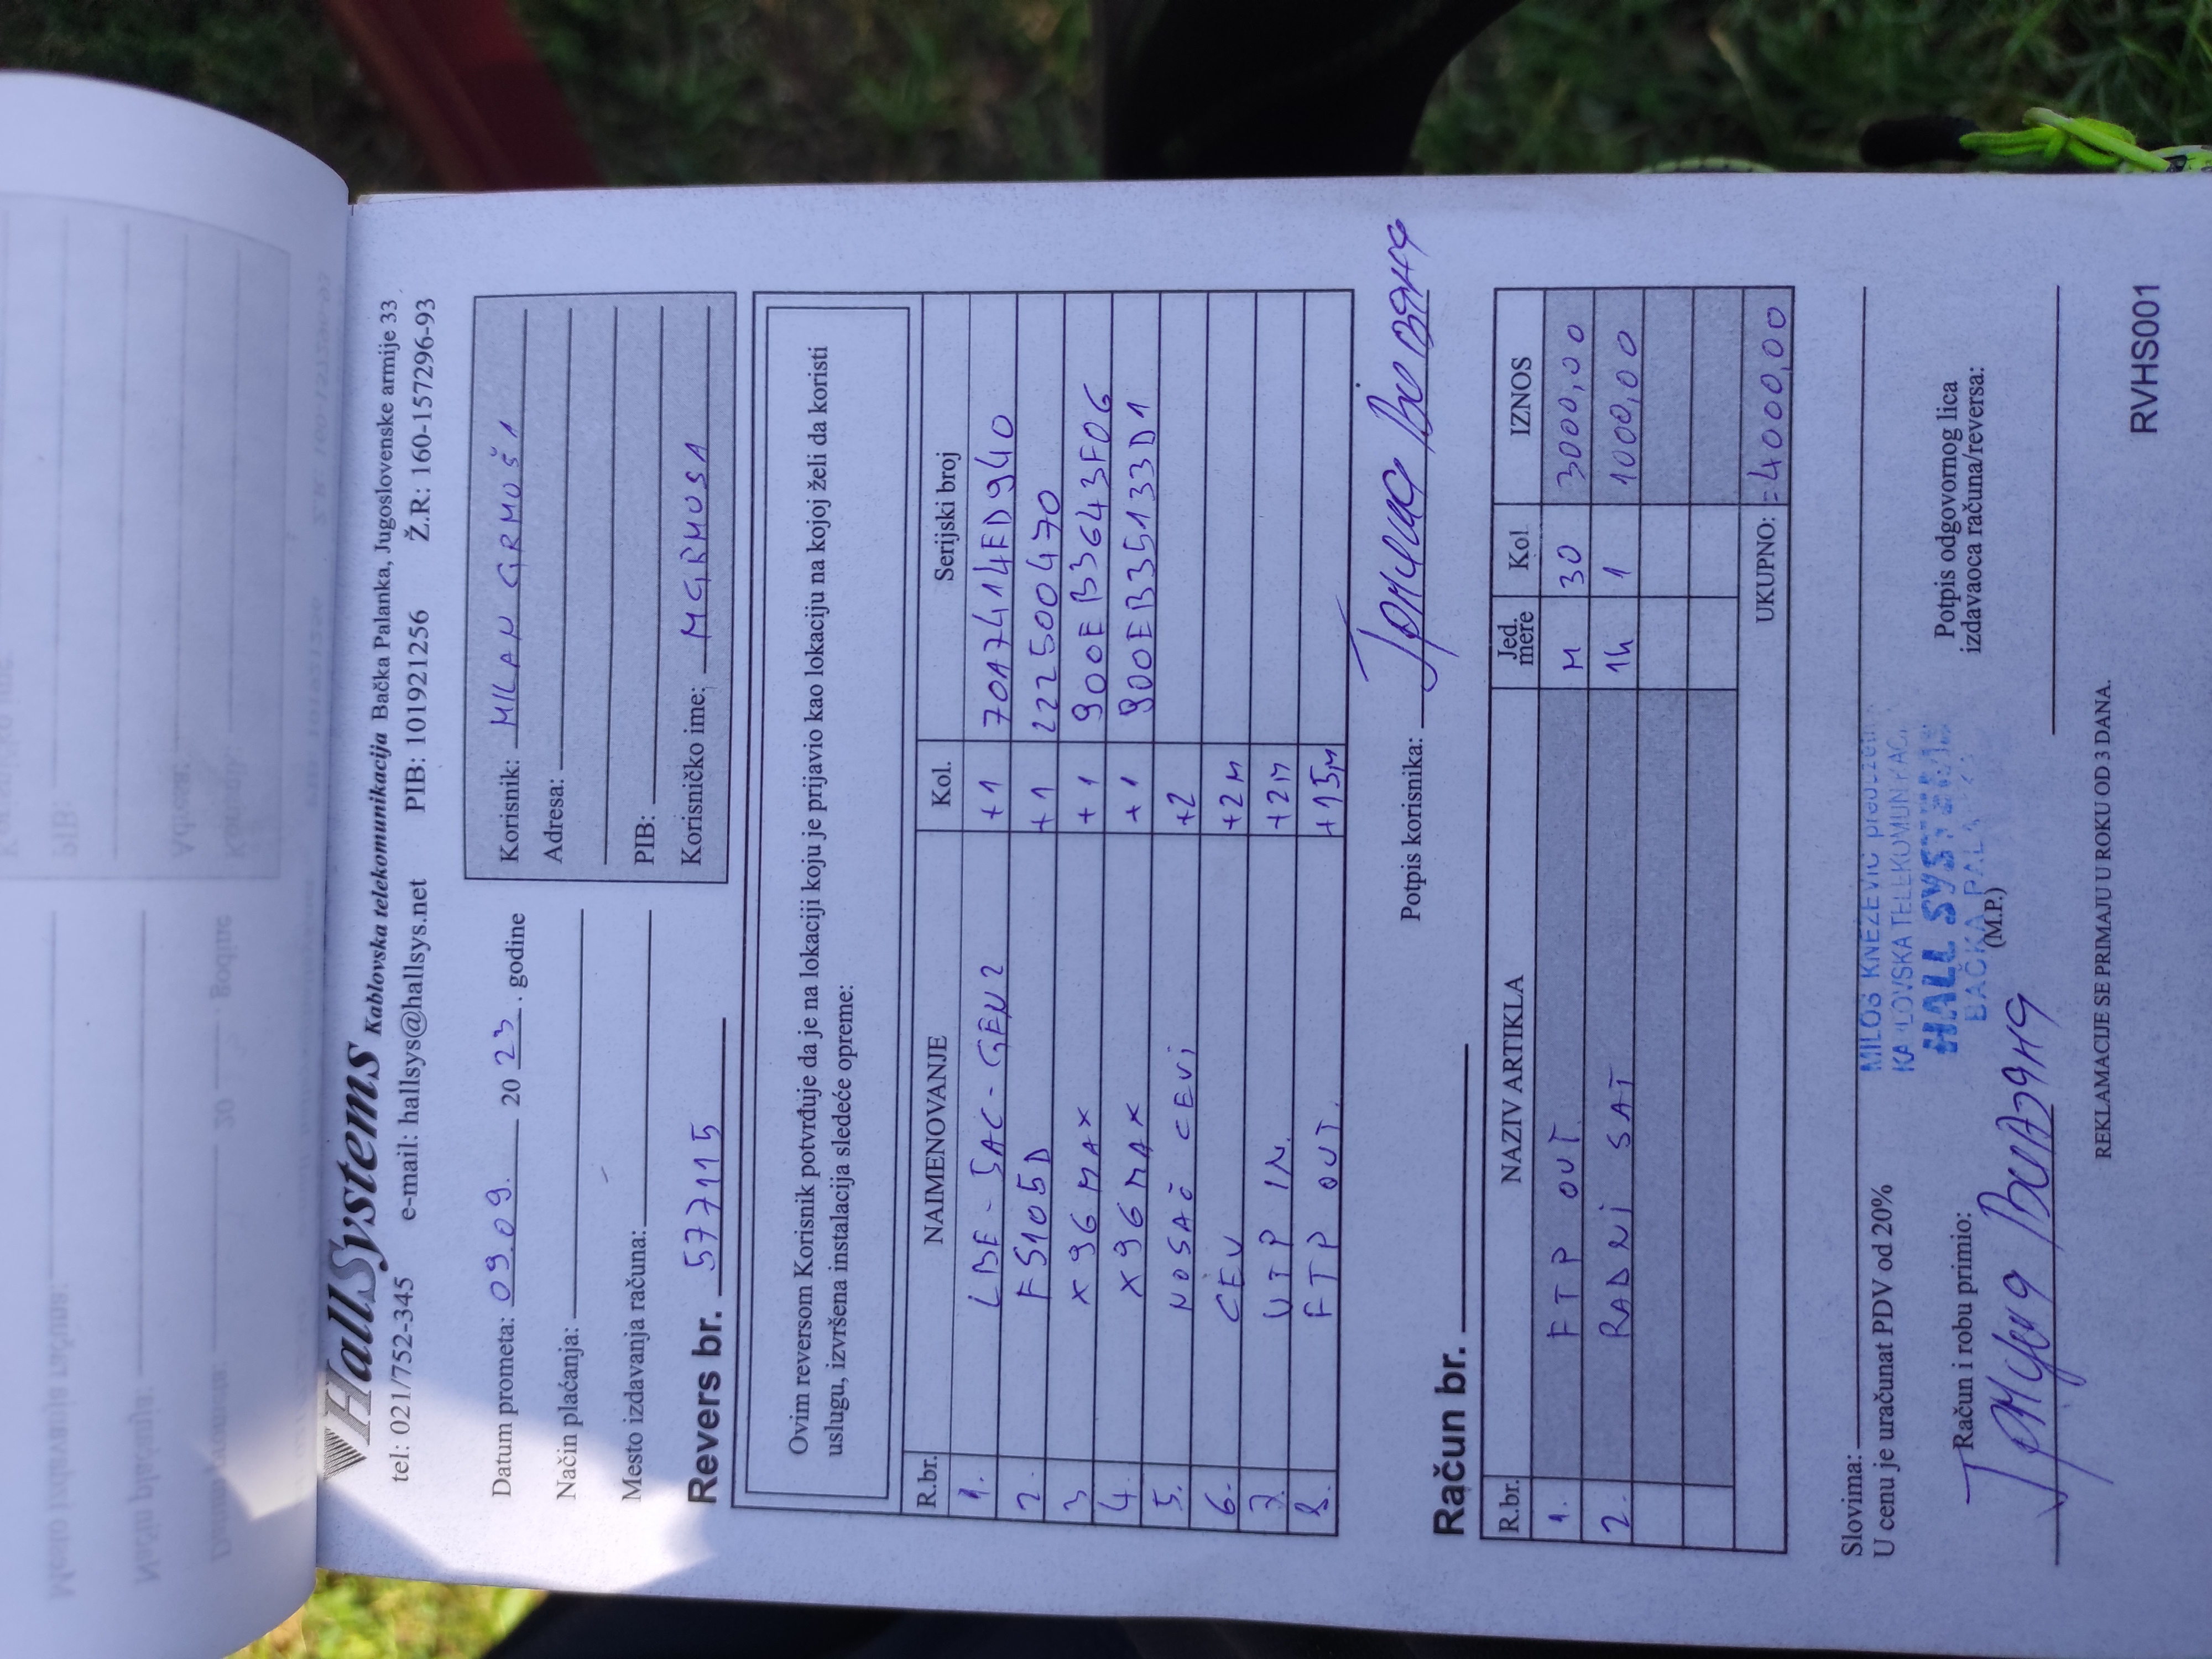 HallSystems Kablovska telekomunikacija Bačka Palanka, Jugoslovenske armije 33
tel: 021/752-345 e-mail: hallsys@hallsys.net PIB: 101921256 Ž.R: 160-157296-93
Datum prometa: 09.09. 20 23. godine
Način plaćanja:
Mesto izdavanja računa:
Korisnik: MILAN GRMUŠA
Adresa:
PIB:
Korisničko ime: MGRMUSA
Revers br. 577115
Ovim reversom Korisnik potvrđuje da je na lokaciji koju je prijavio kao lokaciju na kojoj želi da koristi
uslugu, izvršena instalacija sledeće opreme:
R.br. NAIMENOVANJE Kol. Serijski broj
1. LBE-5AC-GEN2 +1 70A7414ED940
2. FS105D +1 222500470
3. X96MAX +1 900EB3643F06
4. X96MAX +1 900EB35133D1
5. NOSAČ CEVI +2
6. CEV +2M
7. UTP IN. +2M
8. FTP OUT. +15M
Potpis korisnika:
Račun br.
R.br. NAZIV ARTIKLA Jed. mere Kol IZNOS
1. FTP OUT. M 30 3000,00
2. RADNI SAT 1h 1 1000,00
UKUPNO: =4000,00
Slovima:
U cenu je uračunat PDV od 20%
MILOŠ KNEŽEVIĆ preduzetn.
KABLOVSKA TELEKOMUNIKAC.
HALL SYSTEMS
BAČKA PALANKA
Račun i robu primio:
(M.P.)
Potpis odgovornog lica
izdavaoca računa/reversa:
REKLAMACIJE SE PRIMAJU U ROKU OD 3 DANA.
RVHS001